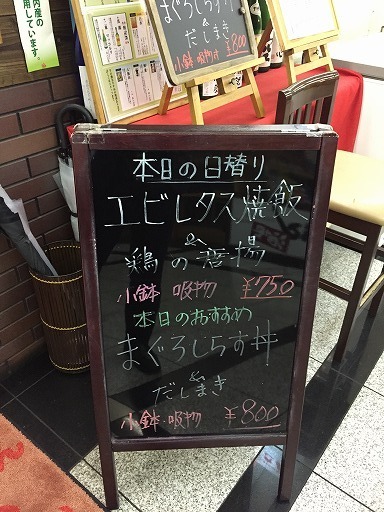 内産の
用しています。
まぐろしらす丼
&
だしまき
小鉢 吸物 ¥800
本日の日替り
エビレタス焼飯
&
鶏の唐揚
小鉢 吸物 ¥750
本日のおすすめ
まぐろしらす丼
&
だしまき
小鉢 吸物 ¥800